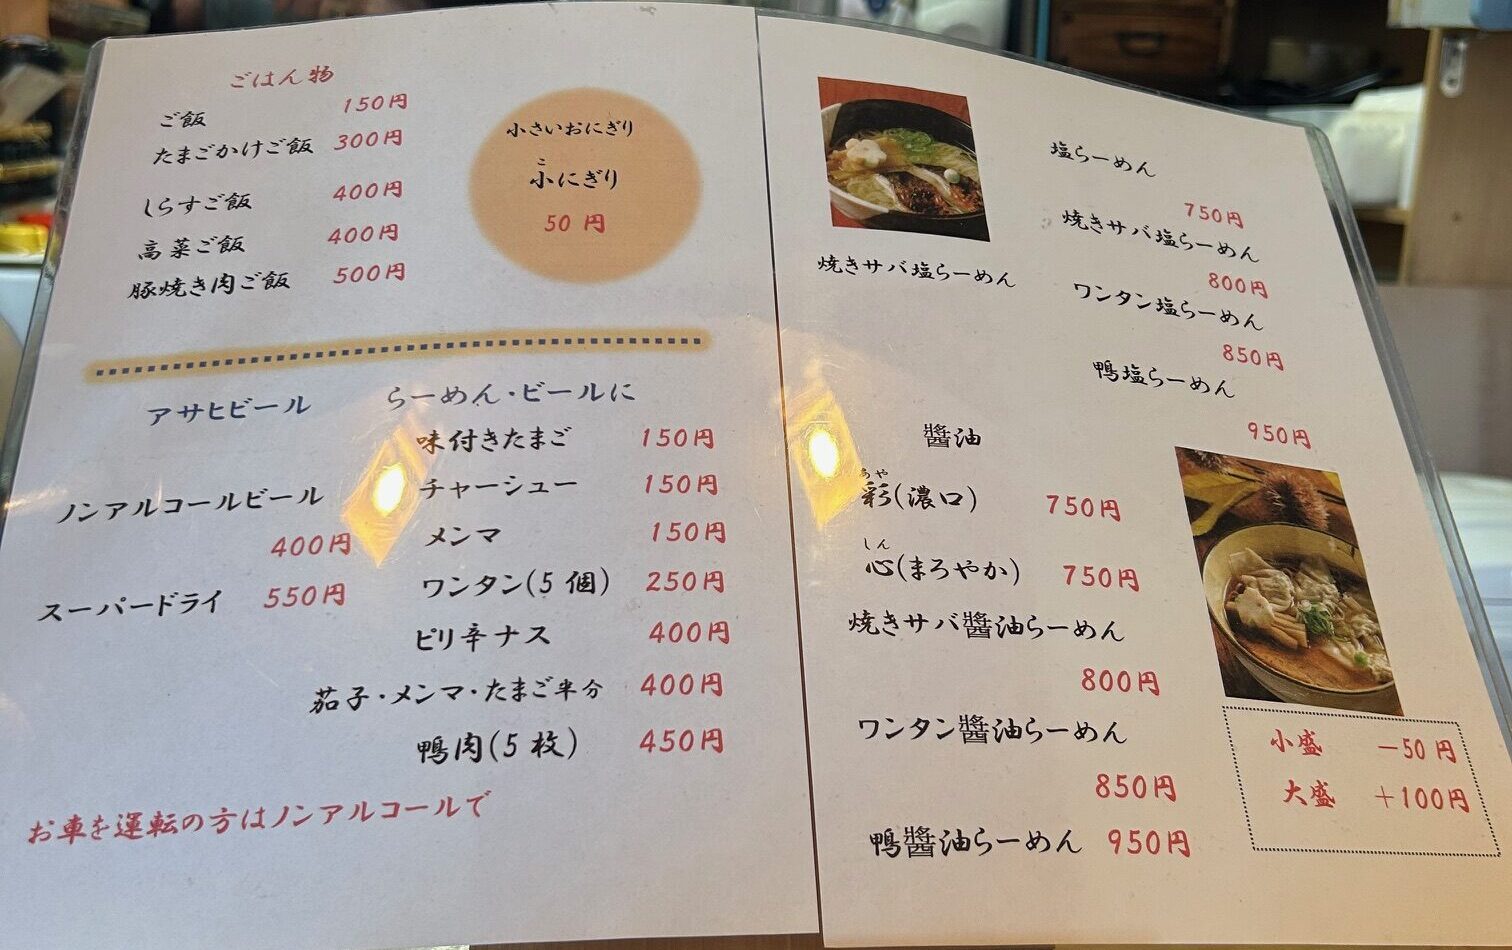 ごはん物
ご飯 150円
たまごかけご飯 300円
しらすご飯 400円
高菜ご飯 400円
豚焼き肉ご飯 500円
小さいおにぎり
こ
小にぎり
50円
アサヒビール
ノンアルコールビール
400円
スーパードライ 550円
らーめん・ビールに
味付きたまご 150円
チャーシュー 150円
メンマ 150円
ワンタン(5個) 250円
ピリ辛ナス 400円
茄子・メンマ・たまご半分 400円
鴨肉(5枚) 450円
お車を運転の方はノンアルコールで
焼きサバ塩らーめん
塩らーめん
750円
焼きサバ塩らーめん
800円
ワンタン塩らーめん
850円
鴨塩らーめん
950円
醬油
あや
彩(濃口) 750円
しん
心(まろやか) 750円
焼きサバ醬油らーめん
800円
ワンタン醬油らーめん
850円
鴨醬油らーめん 950円
小盛 −50円
大盛 +100円